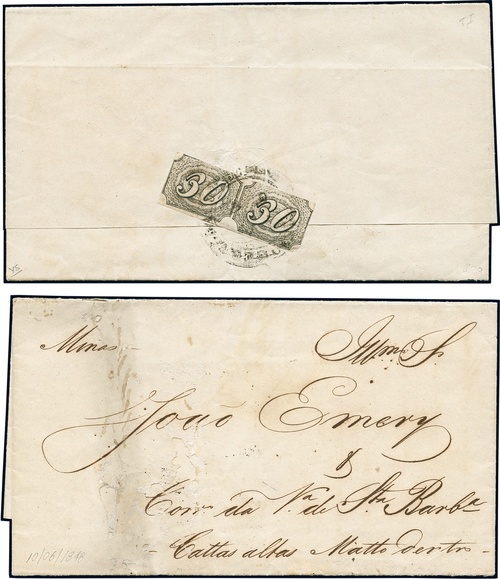 30 30
Minas
Illmo. Sr.
João Emery
&
Corro. da Va. de Sta. Barbe
Cattas altas Matto dentro